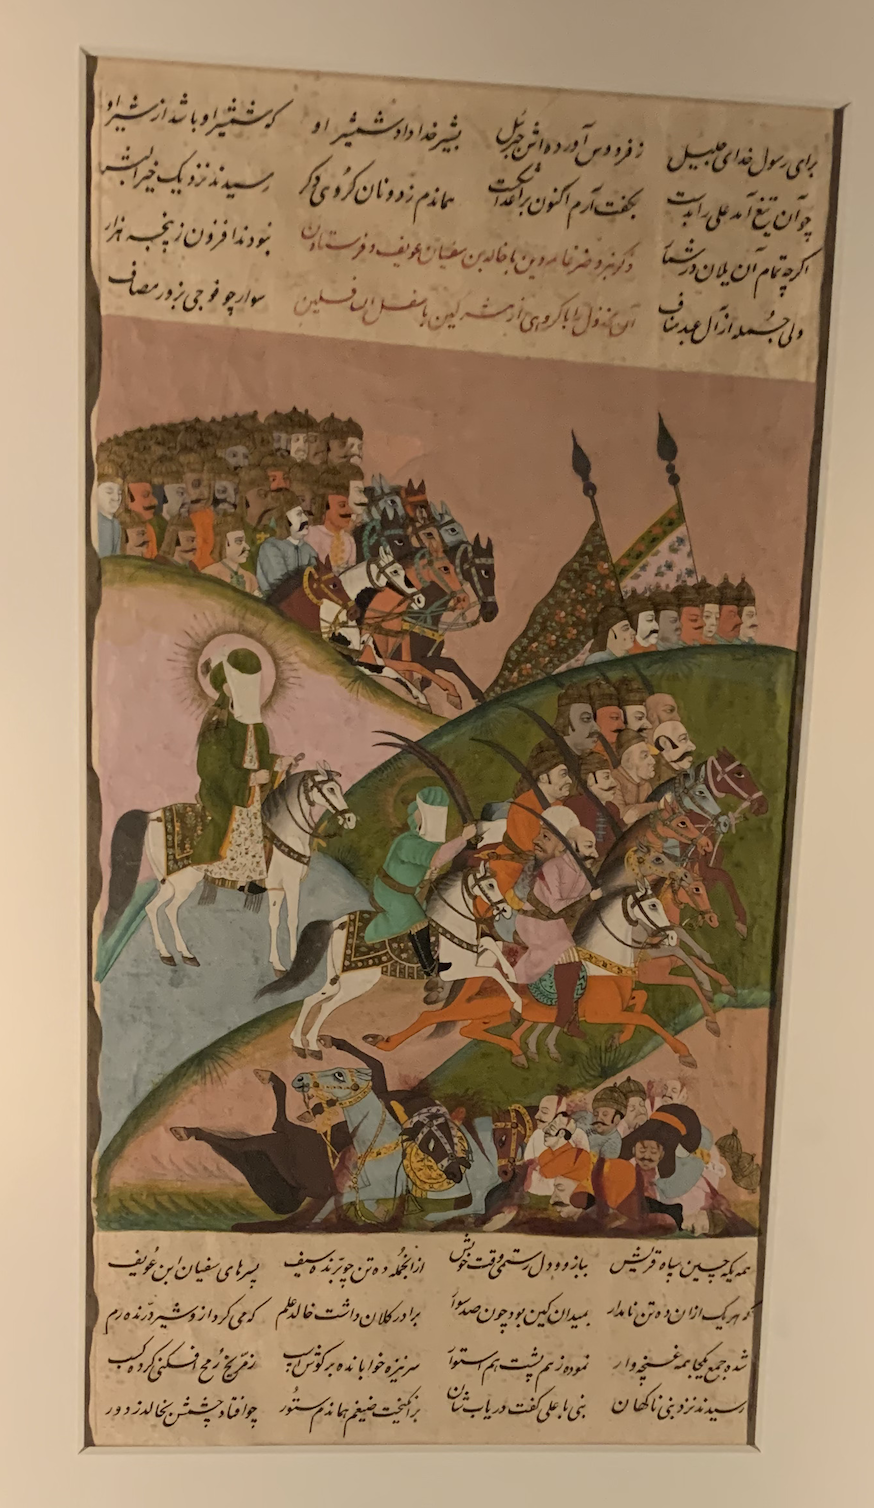 برای رسول خدای جلیل ز فردوس آورده اش جبرئیل بشیر خدا داد شمشیر او که شمشیر او باشد از شیر او
چو آن تیغ آمد علی را بدست بگفت آرم اکنون بر اعدا شکست هماندم ز دونان گروی دگر رسیدند نزدیک خیرالبشر
اگرچه تمام آن یلان در شمار ذکر نبرد با خالد بن سفیان عویف و فرستادن نبودند افزون ز پنجه هزار
ولی جمله از آل عبد مناف آن مخذول را با گروهی از مشرکین باسفل السافلین سوار چو فوجی بروز مصاف
همه یکه چین سپاه قریش ببازو و دل رستم وقت خویش از انجمله ده تن چو برنده سیف پسرهای سفیان ابن عویف
که هر یک ازان ده تن نامدار بمیدان کین بود چون صد سوار برادر کلان داشت خالد علم که می کرد ازو شیر درنده رم
شده جمع یکجا همه غنچه وار نموده ز هم پشت هم استوار سر نیزه خوابانده بر گوش اسب ز مریخ رمح افکنی کرده کسب
رسیدند نزد نبی ناگهان نبی با علی گفت دریاب شان برانگیخت ضیغم هماندم ستور چو افتاد چشمش بخالد ز دور